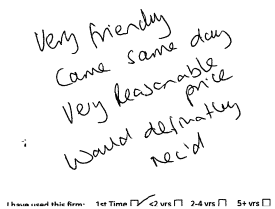 Very friendly
Came same day
Very Reasonable
price
Would definatley
rec'd
I have used this firm: 1st Time <2 yrs 2-4 yrs 5+ yrs